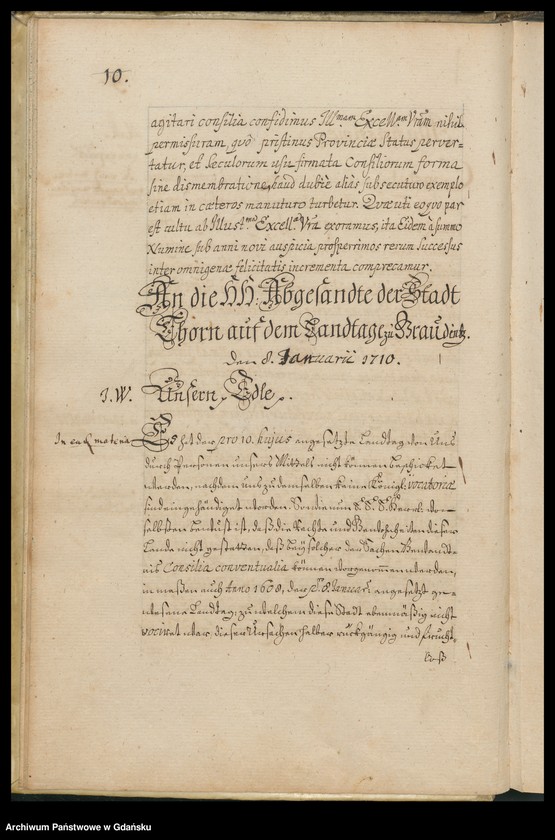 10.
agitari consilia confidimus Ill.mam Excell.am Vram nihil
permissuram, quô pristinus Provinciæ Status perver=
tatur, et Seculorum usu firmata Consiliorum forma
sine dismembratione, haud dubiè alias subsecuturo exemplo
etiam in cæteros manuturo turbetur. Quæ uti eo quo par
est cultu ab Illust.mâ Excell.â Vrâ exoramus, ita Eidem a summo
Numine sub anni novi auspicia prosperrimos rerum successus
inter omnigenæ felicitatis incrementa comprecamur.
An die HH: Abgesandte der Stadt
Thorn auf dem Landtage zu Graudentz.
den 8. Januarii 1710.
J. W. Unsern, Edle,.
In ead. materia
Es hat der pro 10. hujus angesetzte Landtag von Uns
durch Personen unsers Mittels nicht können beschicket
werden, nachdem Uns zu demselben keine Königl: vocatoriæ
sind eingehändiget worden. Sondern E. E. E. Herrl. von
selbsten bewust ist, daß die Rechte und Gewohnheiten dieser
Lande nicht gestatten, daß bey solcher der Sachen Bewandt=
nis Consilia conventualia können vorgenommen werden,
in maßen auch Anno 1608, der pro 8. Januarii angesetzt ge=
wesene Landtag, zu welchem diese Stadt ebenmäßig nicht
vociret war, dieser Ursachen halber rückgängig und frucht=
loß
Archiwum Państwowe w Gdańsku